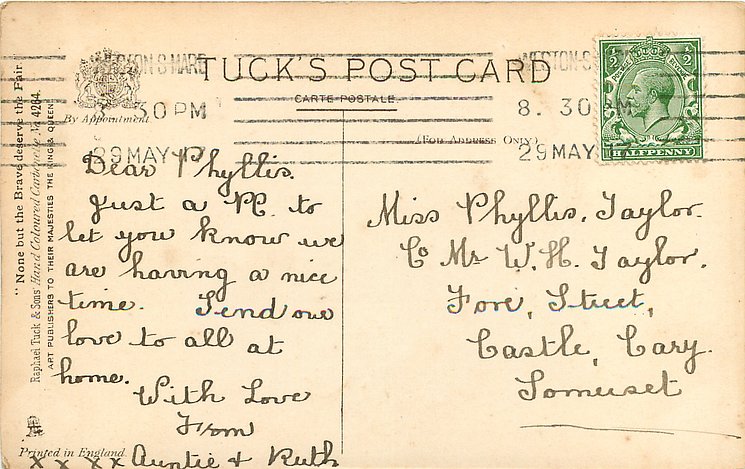 TUCK'S POST CARD
CARTE POSTALE
(FOR ADDRESS ONLY)
By Appointment
WESTON-S-MARE
8. 30 PM
29 MAY 17
HALFPENNY
"None but the Brave deserve the Fair."
Raphael Tuck & Sons' Hand Coloured Carbonette No 4264.
ART PUBLISHERS TO THEIR MAJESTIES THE KING & QUEEN
Dear Phyllis.
Just a P.C. to
let you know we
are having a nice
time. Send our
love to all at
home.
With Love
From
x x x x Auntie & Ruth
Miss Phyllis, Taylor.
C/o Mr W. H. Taylor.
Fore, Street,
Castle, Cary.
Somerset
Printed in England.